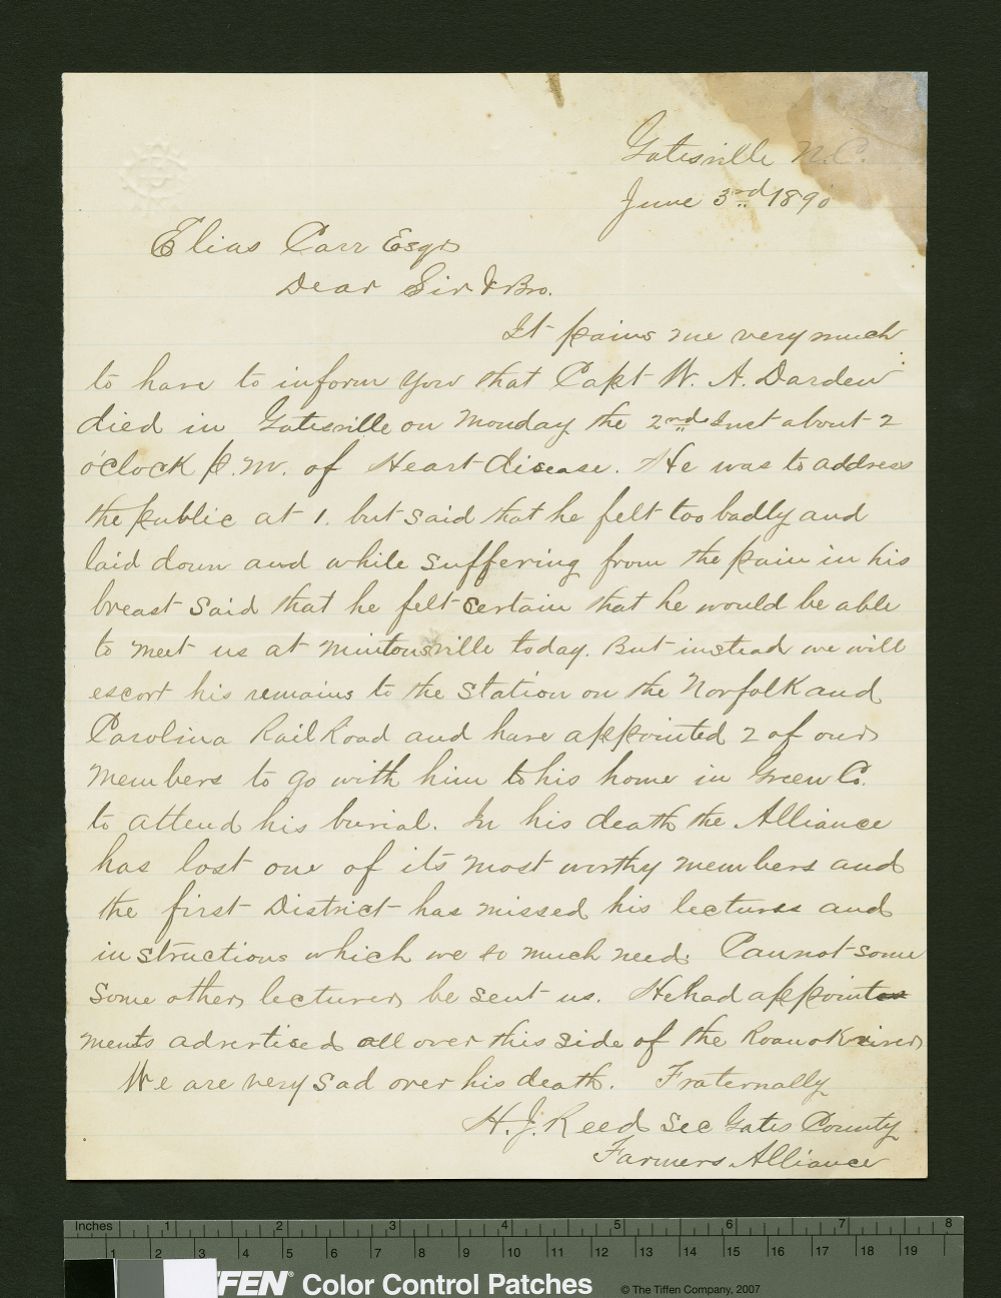 Gatesville N.C.
June 3rd 1890
Elias Carr Esqr
Dear Sir & Bro.
It pains me very much
to have to inform you that Capt W. A. Darden
died in Gatesville on Monday the 2nd Inst about 2
o'clock P.M. of Heart disease. He was to address
the public at 1. but said that he felt too badly and
laid down and while suffering from the pain in his
breast said that he felt certain that he would be able
to meet us at Mintonsville today. But instead we will
escort his remains to the Station on the Norfolk and
Carolina Rail Road and have appointed 2 of our
members to go with him to his home in Green Co.
to attend his burial. In his death the Alliance
has lost one of its most worthy members and
the first District has missed his lectures and
instructions which we so much need. Cannot some
some other lecturer be sent us. He had appoint
ments advertised all over this side of the Roanok river
We are very sad over his death. Fraternally
H. J. Reed Sec Gates County
Farmers Alliance
Inches 1 2 3 4 5 6 7 8
1 2 3 4 5 6 7 8 9 10 11 12 13 14 15 16 17 18 19
FFEN® Color Control Patches © The Tiffen Company, 2007